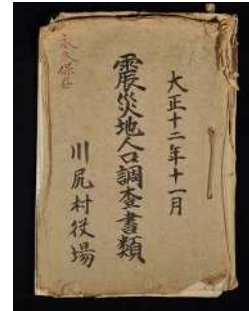 大正十二年十一月
震災地人口調査書類
川尻村役場
永久保存